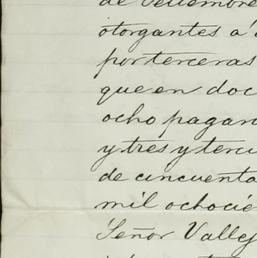 de Setiembre
otorgantes a
por terceras
que en doc
ocho pagan
y tres y terce
de cincuenta
mil ochocie
Señor Valle